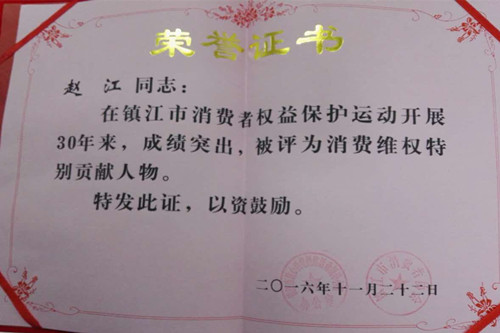 荣誉证书
赵 江 同志：
在镇江市消费者权益保护运动开展
30年来，成绩突出，被评为消费维权特
别贡献人物。
特发此证，以资鼓励。
二〇一六年十一月二十二日